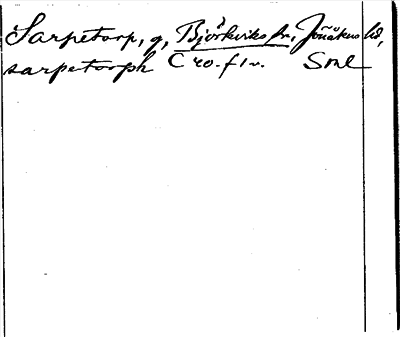 Sarpetorp, g, Björkviks sn, Jönåkers hd,
sarpetorph C 20. f 1 v. Sml